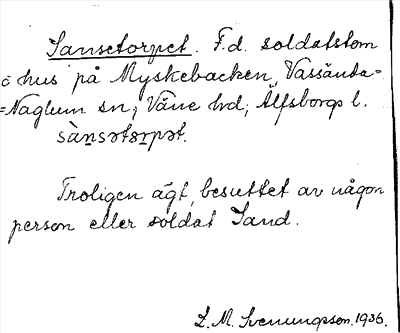 Sansetorpet. F.d. soldatstom
o hus på Myskebacken, Vassända-
=Naglum sn; Väne hd; Älfsborgs l.
sànsətɷrpət.
Troligen ägt, besuttet av någon
person eller soldat Sand.
L. M. Svenungsson. 1936.